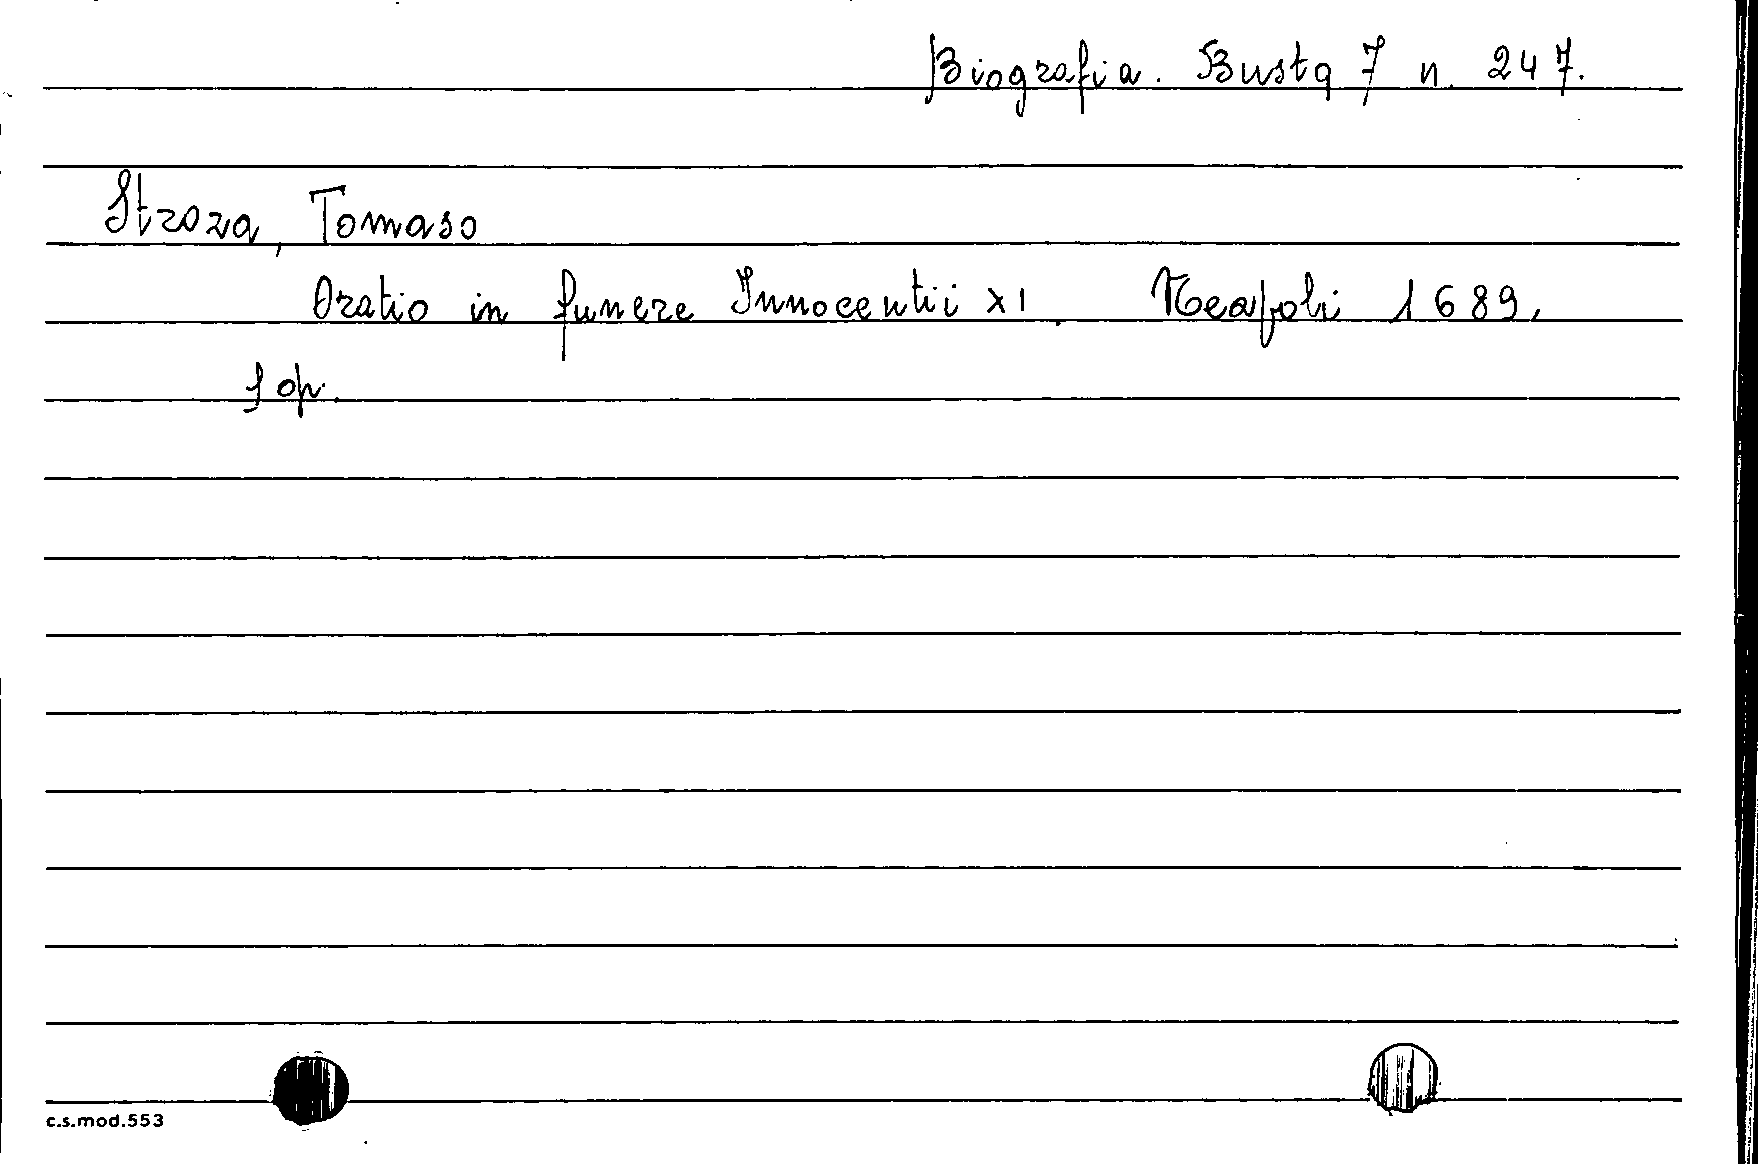 Biografia. Busta 7 n. 247.
Stroza, Tomaso
Oratio in funere Innocentii XI. Neapoli 1689.
1 op.
c.s.mod.553